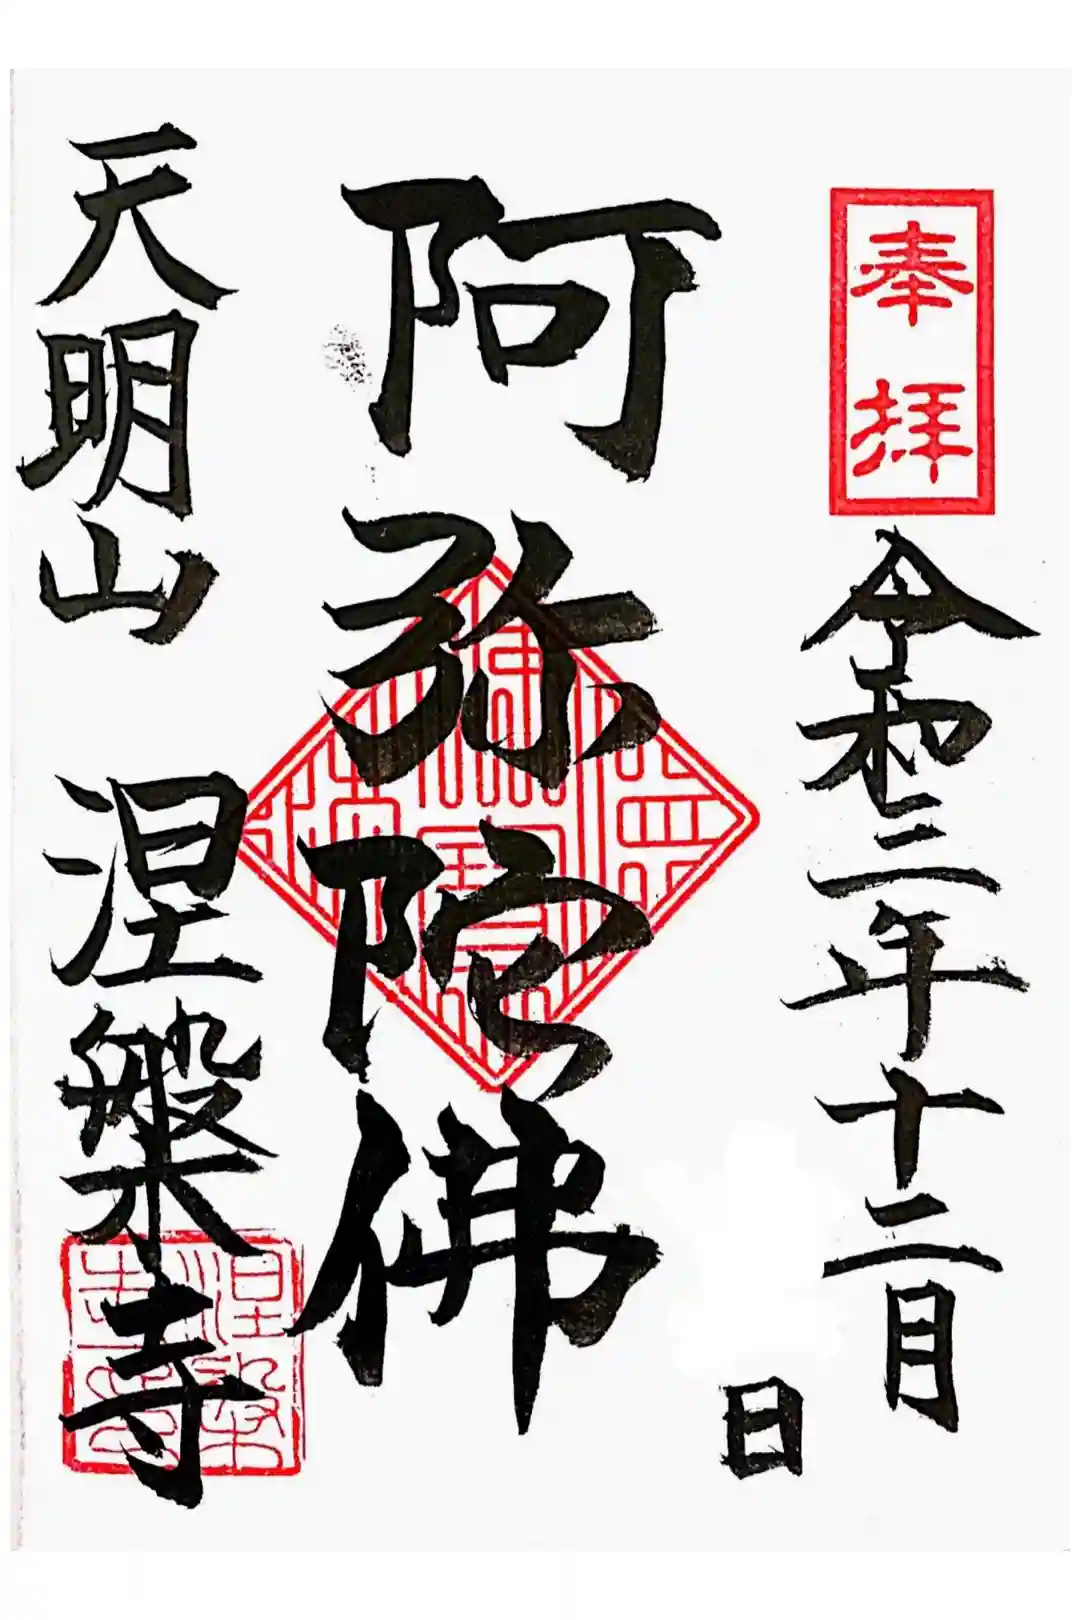 奉拝
令和三年十二月
日
阿弥陀佛
天明山 涅槃寺
涅槃寺印